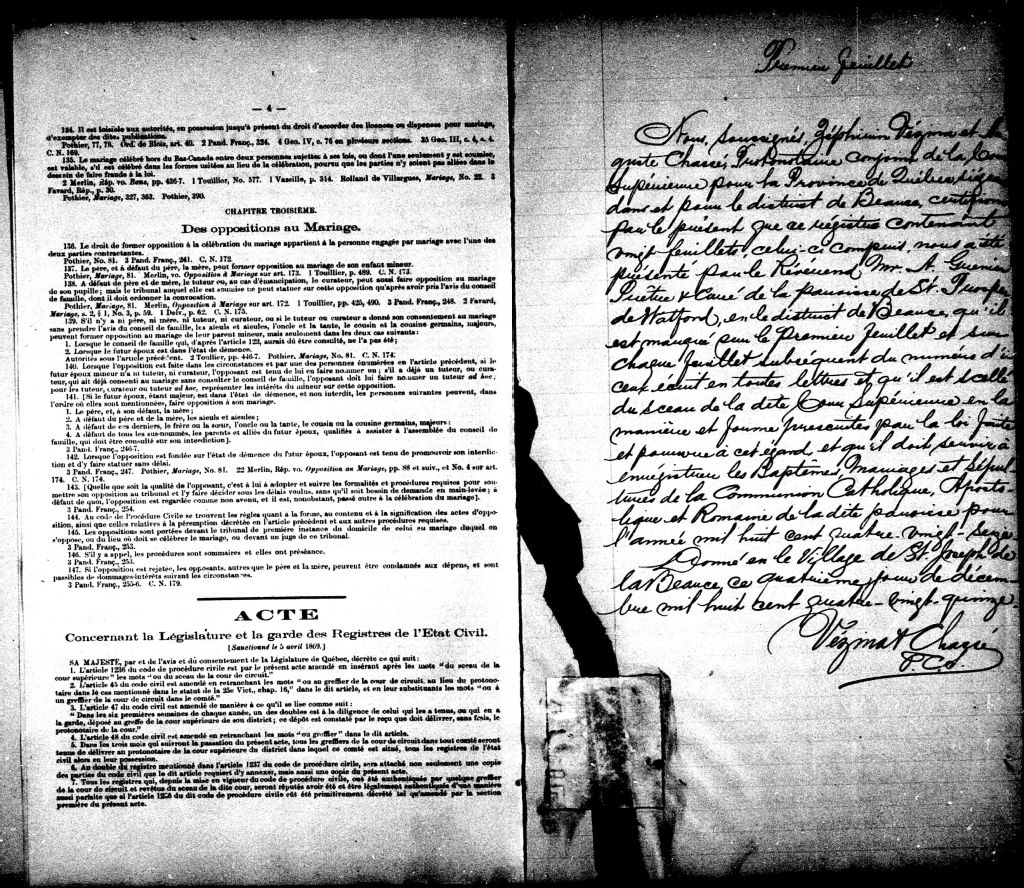 — 4 —
134. Il est loisible aux autorités, en possession jusqu'à présent du droit d'accorder des licences ou dispenses pour mariage,
d'exempter des dites publications.
Pothier, 77, 78. Ord. de Blois, art. 40. 2 Pand. Franç., 324. 4 Geo. IV, c. 76 en plusieurs sections. 35 Geo. III, c. 4, s. 4.
C. N. 169.
135. Le mariage célébré hors du Bas-Canada entre deux personnes sujettes à ses lois, ou dont l'une seulement y est soumise,
est valable, s'il est célébré dans les formes usitées au lieu de la célébration, pourvu que les parties n'y soient pas allées dans le
dessein de faire fraude à la loi.
2 Merlin, Rép. vo. Bans, pp. 436-7. 1 Touillier, No. 577. 1 Vazeille, p. 314. Rolland de Villargues, Mariage, No. 22. 3
Favard, Rép., p. 30.
Pothier, Mariage, 327, 363. Pothier, 390.
CHAPITRE TROISIÈME.
Des oppositions au Mariage.
136. Le droit de former opposition à la célébration du mariage appartient à la personne engagée par mariage avec l'une des
deux parties contractantes.
Pothier, No. 81. 3 Pand. Franç., 241. C. N. 172.
137. Le père, et à défaut du père, la mère, peut former opposition au mariage de son enfant mineur.
Pothier, Mariage, 81. Merlin, vo. Opposition à Mariage sur art. 173. 1 Touillier, p. 489. C. N. 173.
138. A défaut de père et de mère, le tuteur ou, au cas d'émancipation, le curateur, peut aussi faire opposition au mariage
de son pupille; mais le tribunal auquel elle est soumise ne peut statuer sur cette opposition qu'après avoir pris l'avis du conseil
de famille, dont il doit ordonner la convocation.
Pothier, Mariage, 81. Merlin, Opposition à Mariage sur art. 172. 1 Touillier, pp. 425, 490. 3 Pand. Franç., 248. 2 Favard,
Mariage, s. 2, § 1, No. 3, p. 59. 1 Delv., p. 62. C. N. 175.
139. S'il n'y a ni père, ni mère, ni tuteur, ni curateur, ou si le tuteur ou curateur a donné son consentement au mariage
sans prendre l'avis du conseil de famille, les aïeuls et aïeules, l'oncle et la tante, le cousin et la cousine germains, majeurs,
peuvent former opposition au mariage de leur parent mineur, mais seulement dans les deux cas suivants :
1. Lorsque le conseil de famille qui, d'après l'article 122, aurait dû être consulté, ne l'a pas été;
2. Lorsque le futur époux est dans l'état de démence.
Autorités sous l'article précédent. 2 Touillier, pp. 446-7. Pothier, Mariage, No. 81. C. N. 174.
140. Lorsque l'opposition est faite dans les circonstances et par une des personnes énumérées en l'article précédent, si le
futur époux mineur n'a ni tuteur, ni curateur, l'opposant est tenu de lui en faire nommer un; s'il a déjà un tuteur, ou cura-
teur, qui ait déjà consenti au mariage sans consulter le conseil de famille, l'opposant doit lui faire nommer un tuteur ad hoc,
pour les tuteur, curateur ou tuteur ad hoc, représenter les intérêts du mineur sur cette opposition.
141. [Si le futur époux, étant majeur, est dans l'état de démence, et non interdit, les personnes suivantes peuvent, dans
l'ordre où elles sont mentionnées, faire opposition à son mariage.
1. Le père, et, à son défaut, la mère;
2. A défaut du père et de la mère, les aïeuls et aïeules;
3. A défaut de ces derniers, le frère ou la sœur, l'oncle ou la tante, le cousin ou la cousine germains, majeurs;
4. A défaut de tous les sus-nommés, les parents et alliés du futur époux, qualifiés à assister à l'assemblée du conseil de
famille, qui doit être consulté sur son interdiction].
3 Pand. Franç., 246-7.
142. Lorsque l'opposition est fondée sur l'état de démence du futur époux, l'opposant est tenu de promouvoir son interdic-
tion et d'y faire statuer sans délai.
3 Pand. Franç., 247. Pothier, Mariage, No. 81. 22 Merlin, Rép. vo. Opposition au Mariage, pp. 88 et suiv., et No. 4 sur art.
174. C. N. 174.
143. [Quelle que soit la qualité de l'opposant, c'est à lui à adopter et suivre les formalités et procédures requises pour sou-
mettre son opposition au tribunal et l'y faire décider sous les délais voulus, sans qu'il soit besoin de demande en main-levée; à
défaut de quoi, l'opposition est regardée comme non avenu, et il est, nonobstant, passé outre à la célébration du mariage].
3 Pand. Franç., 254.
144. Au Code de Procédure Civile se trouvent les règles quant à la forme, au contenu et à la signification des actes d'oppo-
sition, ainsi que celles relatives à la péremption décrétée en l'article précédent et aux autres procédures requises.
145. Les oppositions sont portées devant le tribunal de première instance du domicile de celui au mariage duquel on
s'oppose, ou du lieu où doit se célébrer le mariage, ou devant un juge de ce tribunal.
3 Pand. Franç., 253.
146. S'il y a appel, les procédures sont sommaires et elles ont préséance.
3 Pand. Franç., 253.
147. Si l'opposition est rejetée, les opposants, autres que le père et la mère, peuvent être condamnés aux dépens, et sont
passibles de dommages-intérêts suivant les circonstances.
3 Pand. Franç., 255-6. C. N. 179.
ACTE
Concernant la Législature et la garde des Registres de l'Etat Civil.
[Sanctionné le 5 avril 1869.]
SA MAJESTE, par et de l'avis et du consentement de la Législature de Québec, décrète ce qui suit:
1. L'article 1236 du code de procédure civile est par le présent acte amendé en insérant après les mots "du sceau de la
cour supérieure" les mots "ou du sceau de la cour de circuit."
2. L'article 45 du code civil est amendé en retranchant les mots "ou au greffier de la cour de circuit, au lieu du protono-
taire dans le cas mentionné dans le statut de la 25e Vict., chap. 16," dans le dit article, et en leur substituants les mots "ou à
un greffier de la cour de circuit dans le comté."
3. L'article 47 du code civil est amendé de manière à ce qu'il se lise comme suit:
"Dans les six premières semaines de chaque année, un des doubles est à la diligence de celui qui les a tenus, ou qui en a
la garde, déposé au greffe de la cour supérieure de son district; ce dépôt est constaté par le reçu que doit délivrer, sans frais, le
protonotaire de la cour."
4. L'article 48 du code civil est amendé en retranchant les mots "ou greffier" dans le dit article.
5. Dans les trois mois qui suivront la passation du présent acte, tous les greffiers de la cour de circuit dans tout comté seront
tenus de délivrer au protonotaire de la cour supérieure du district dans lequel ce comté est situé, tous les registres de l'état
civil alors en leur possession.
6. Au double du registre mentionné dans l'article 1237 du code de procédure civile, sera attaché non seulement une copie
des parties du code civil que le dit article requiert d'y annexer, mais aussi une copie du présent acte.
7. Tous les registres qui, depuis la mise en vigueur du code de procédure civile, ont été authentiqués par quelque greffier
de la cour de circuit et revêtus du sceau de la dite cour, seront réputés avoir été et être légalement authentiqués d'une manière
aussi parfaite que si l'article 1236 du dit code de procédure civile eût été primitivement décrété tel qu'amendé par la section
première du présent acte.
Premier feuillet
Nous, soussignés, Zéphirin Vézina et
guste Chassé, Protonotaire conjoint de la Cour
Supérieure pour la Province de Québec,
dans et pour le district de Beauce, certifions
par le présent que ce régistre contenant
vingt feuillets, celui-ci compris, nous a été
présenté par le Révérend Mr A.
Prêtre & Curé de la paroisse de St. Prosper
de Watford, en le district de Beauce, qu'il
est marqué sur le Premier feuillet et sur
chaque feuillet subséquent du numéro d'i
ceux écrit en toutes lettres et qu'il est scellé
du sceau de la dite Cour Supérieure en la
manière et forme prescrites par la loi faite
et pourvue à cet égard, et qu'il doit servir à
enregistrer les Baptêmes, Mariages et Sépul
tures de la Communion Catholique, Aposto
lique et Romaine de la dite paroisse pour
l'année mil huit cent quatre-vingt-seize
Donné en le Village de St. Joseph de
la Beauce, ce quatrième jour de décem-
bre mil huit cent quatre-vingt-quinze.
Vézina & Chassé
P.C.S.